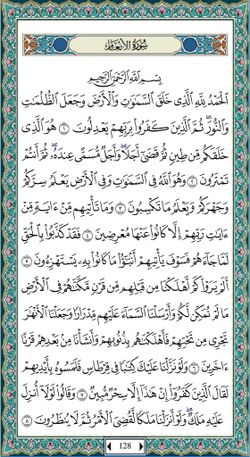 سُورَةُ الأَنْعَامِ
بِسْمِ اللَّهِ الرَّحْمَٰنِ الرَّحِيمِ
الْحَمْدُ لِلَّهِ الَّذِي خَلَقَ السَّمَٰوَٰتِ وَالْأَرْضَ وَجَعَلَ الظُّلُمَٰتِ
وَالنُّورَ ثُمَّ الَّذِينَ كَفَرُوا بِرَبِّهِمْ يَعْدِلُونَ ١ هُوَ الَّذِي
خَلَقَكُم مِّن طِينٍ ثُمَّ قَضَىٰ أَجَلًا وَأَجَلٌ مُّسَمًّى عِندَهُ ثُمَّ أَنتُمْ
تَمْتَرُونَ ٢ وَهُوَ اللَّهُ فِي السَّمَٰوَٰتِ وَفِي الْأَرْضِ يَعْلَمُ سِرَّكُمْ
وَجَهْرَكُمْ وَيَعْلَمُ مَا تَكْسِبُونَ ٣ وَمَا تَأْتِيهِم مِّنْ ءَايَةٍ مِّنْ
ءَايَٰتِ رَبِّهِمْ إِلَّا كَانُوا عَنْهَا مُعْرِضِينَ ٤ فَقَدْ كَذَّبُوا بِالْحَقِّ
لَمَّا جَاءَهُمْ فَسَوْفَ يَأْتِيهِمْ أَنۢبَٰٓؤُا مَا كَانُوا بِهِ يَسْتَهْزِءُونَ ٥
أَلَمْ يَرَوْا كَمْ أَهْلَكْنَا مِن قَبْلِهِم مِّن قَرْنٍ مَّكَّنَّٰهُمْ فِي الْأَرْضِ
مَا لَمْ نُمَكِّن لَّكُمْ وَأَرْسَلْنَا السَّمَاءَ عَلَيْهِم مِّدْرَارًا وَجَعَلْنَا الْأَنْهَٰرَ
تَجْرِي مِن تَحْتِهِمْ فَأَهْلَكْنَٰهُم بِذُنُوبِهِمْ وَأَنشَأْنَا مِنۢ بَعْدِهِمْ قَرْنًا
ءَاخَرِينَ ٦ وَلَوْ نَزَّلْنَا عَلَيْكَ كِتَٰبًا فِي قِرْطَاسٍ فَلَمَسُوهُ بِأَيْدِيهِمْ
لَقَالَ الَّذِينَ كَفَرُوا إِنْ هَٰذَا إِلَّا سِحْرٌ مُّبِينٌ ٧ وَقَالُوا لَوْلَا أُنزِلَ
عَلَيْهِ مَلَكٌ وَلَوْ أَنزَلْنَا مَلَكًا لَّقُضِيَ الْأَمْرُ ثُمَّ لَا يُنظَرُونَ ٨
128